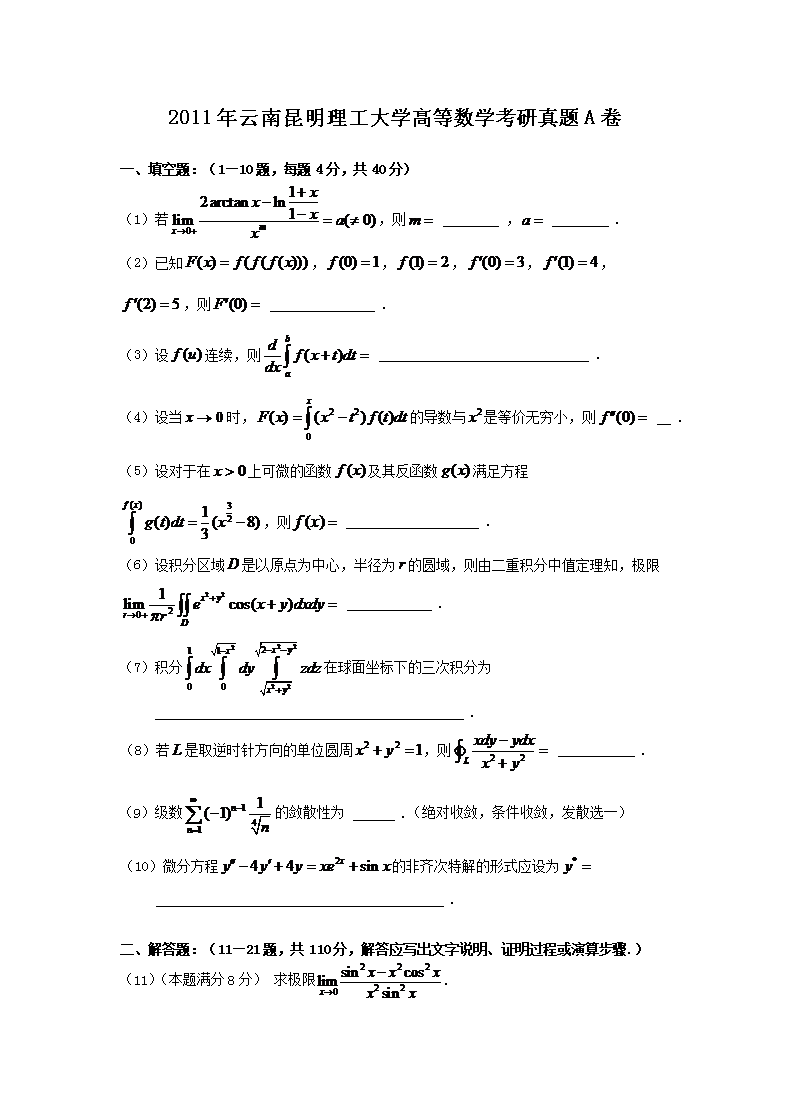 2011年云南昆明理工大学高等数学考研真题A卷
一、填空题：（1—10题，每题4分，共40分）
（1）若 $\lim\limits_{x\to 0+}\dfrac{2\arctan x-\ln\dfrac{1+x}{1-x}}{x^m}=a(\neq 0)$，则 $m=$ ________ ，$a=$ ________ .
（2）已知 $F(x)=f(f(f(x)))$，$f(0)=1$，$f(1)=2$，$f'(0)=3$，$f'(1)=4$，
$f'(2)=5$，则 $F'(0)=$ _______________ .
（3）设 $f(u)$ 连续，则 $\dfrac{d}{dx}\int_a^b f(x+t)dt=$ ______________________________ .
（4）设当 $x\to 0$ 时，$F(x)=\int_0^x (x^2-t^2)f(t)dt$ 的导数与 $x^2$ 是等价无穷小，则 $f''(0)=$ __ .
（5）设对于在 $x>0$ 上可微的函数 $f(x)$ 及其反函数 $g(x)$ 满足方程
$\int_0^{f(x)} g(t)dt=\dfrac{1}{3}(x^{\frac{3}{2}}-8)$，则 $f(x)=$ ___________________ .
（6）设积分区域 $D$ 是以原点为中心，半径为 $r$ 的圆域，则由二重积分中值定理知，极限
$\lim\limits_{r\to 0+}\dfrac{1}{\pi r^2}\iint\limits_D e^{x^2+y^2}\cos(x+y)dxdy=$ ____________ .
（7）积分 $\int_0^1 dx\int_0^{\sqrt{1-x^2}} dy\int_{\sqrt{x^2+y^2}}^{\sqrt{2-x^2-y^2}} zdz$ 在球面坐标下的三次积分为
____________________________________________ .
（8）若 $L$ 是取逆时针方向的单位圆周 $x^2+y^2=1$，则 $\oint_L\dfrac{xdy-ydx}{x^2+y^2}=$ ___________ .
（9）级数 $\sum\limits_{n=1}^{\infty}(-1)^{n-1}\dfrac{1}{\sqrt[4]{n}}$ 的敛散性为 ______ .（绝对收敛，条件收敛，发散选一）
（10）微分方程 $y''-4y'+4y=xe^{2x}+\sin x$ 的非齐次特解的形式应设为 $y^*=$
_________________________________________ .
二、解答题：（11—21题，共110分，解答应写出文字说明、证明过程或演算步骤.）
（11）（本题满分8分） 求极限 $\lim\limits_{x\to 0}\dfrac{\sin^2 x-x^2\cos^2 x}{x^2\sin^2 x}$.